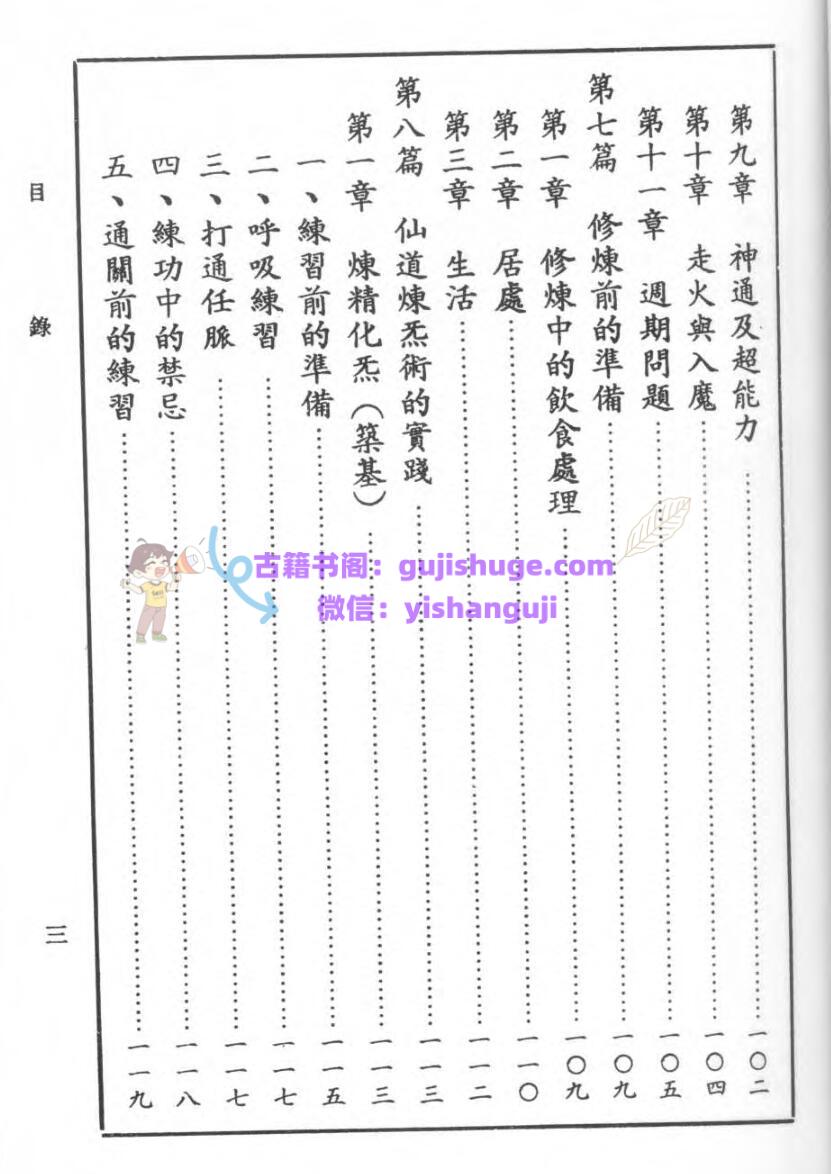 第九章　神通及超能力……一〇二
第十章　走火與入魔……一〇四
第十一章　週期問題……一〇五
第七篇　修煉前的準備……一〇九
第一章　修煉中的飲食處理……一〇九
第二章　居處……一一〇
第三章　生活……一一二
第八篇　仙道煉炁術的實踐……一一三
第一章　煉精化炁（築基）……一一三
一、練習前的準備……一一五
二、呼吸練習……一一七
三、打通任脈……一一七
四、練功中的禁忌……一一八
五、通關前的練習……一一九
目錄
三
古籍书阁：gujishuge.com
微信：yishanguji